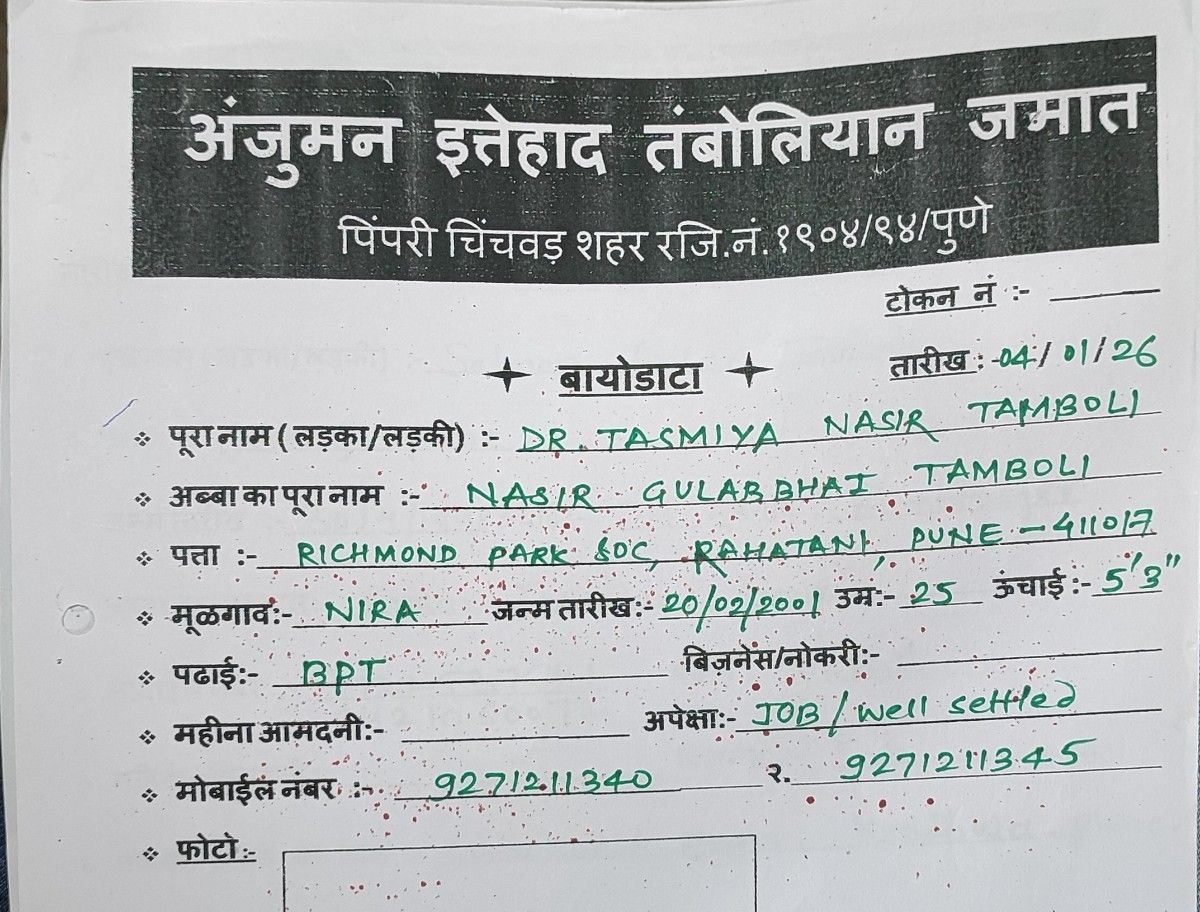 अंजुमन इत्तेहाद तंबोलियान जमात
पिंपरी चिंचवड़ शहर रजि.नं.१९०४/९४/पुणे
टोकन नं :-
तारीख :- 04/01/26
बायोडाटा
पूरा नाम ( लड़का/लड़की) :- DR. TASMIYA NASIR TAMBOLI
अब्बा का पूरा नाम :- NASIR GULABBHAI TAMBOLI
पत्ता :- RICHMOND PARK SOC, RAHATANI, PUNE - 411017
मूळगाव:- NIRA जन्म तारीख:- 20/02/2001 उम्र:- 25 ऊंचाई :- 5'3"
पढाई:- BPT बिज़नेस/नोकरी:-
महीना आमदनी:- अपेक्षा:- JOB / well settled
मोबाईल नंबर :- 9271211340 २. 9271211345
फोटो :-